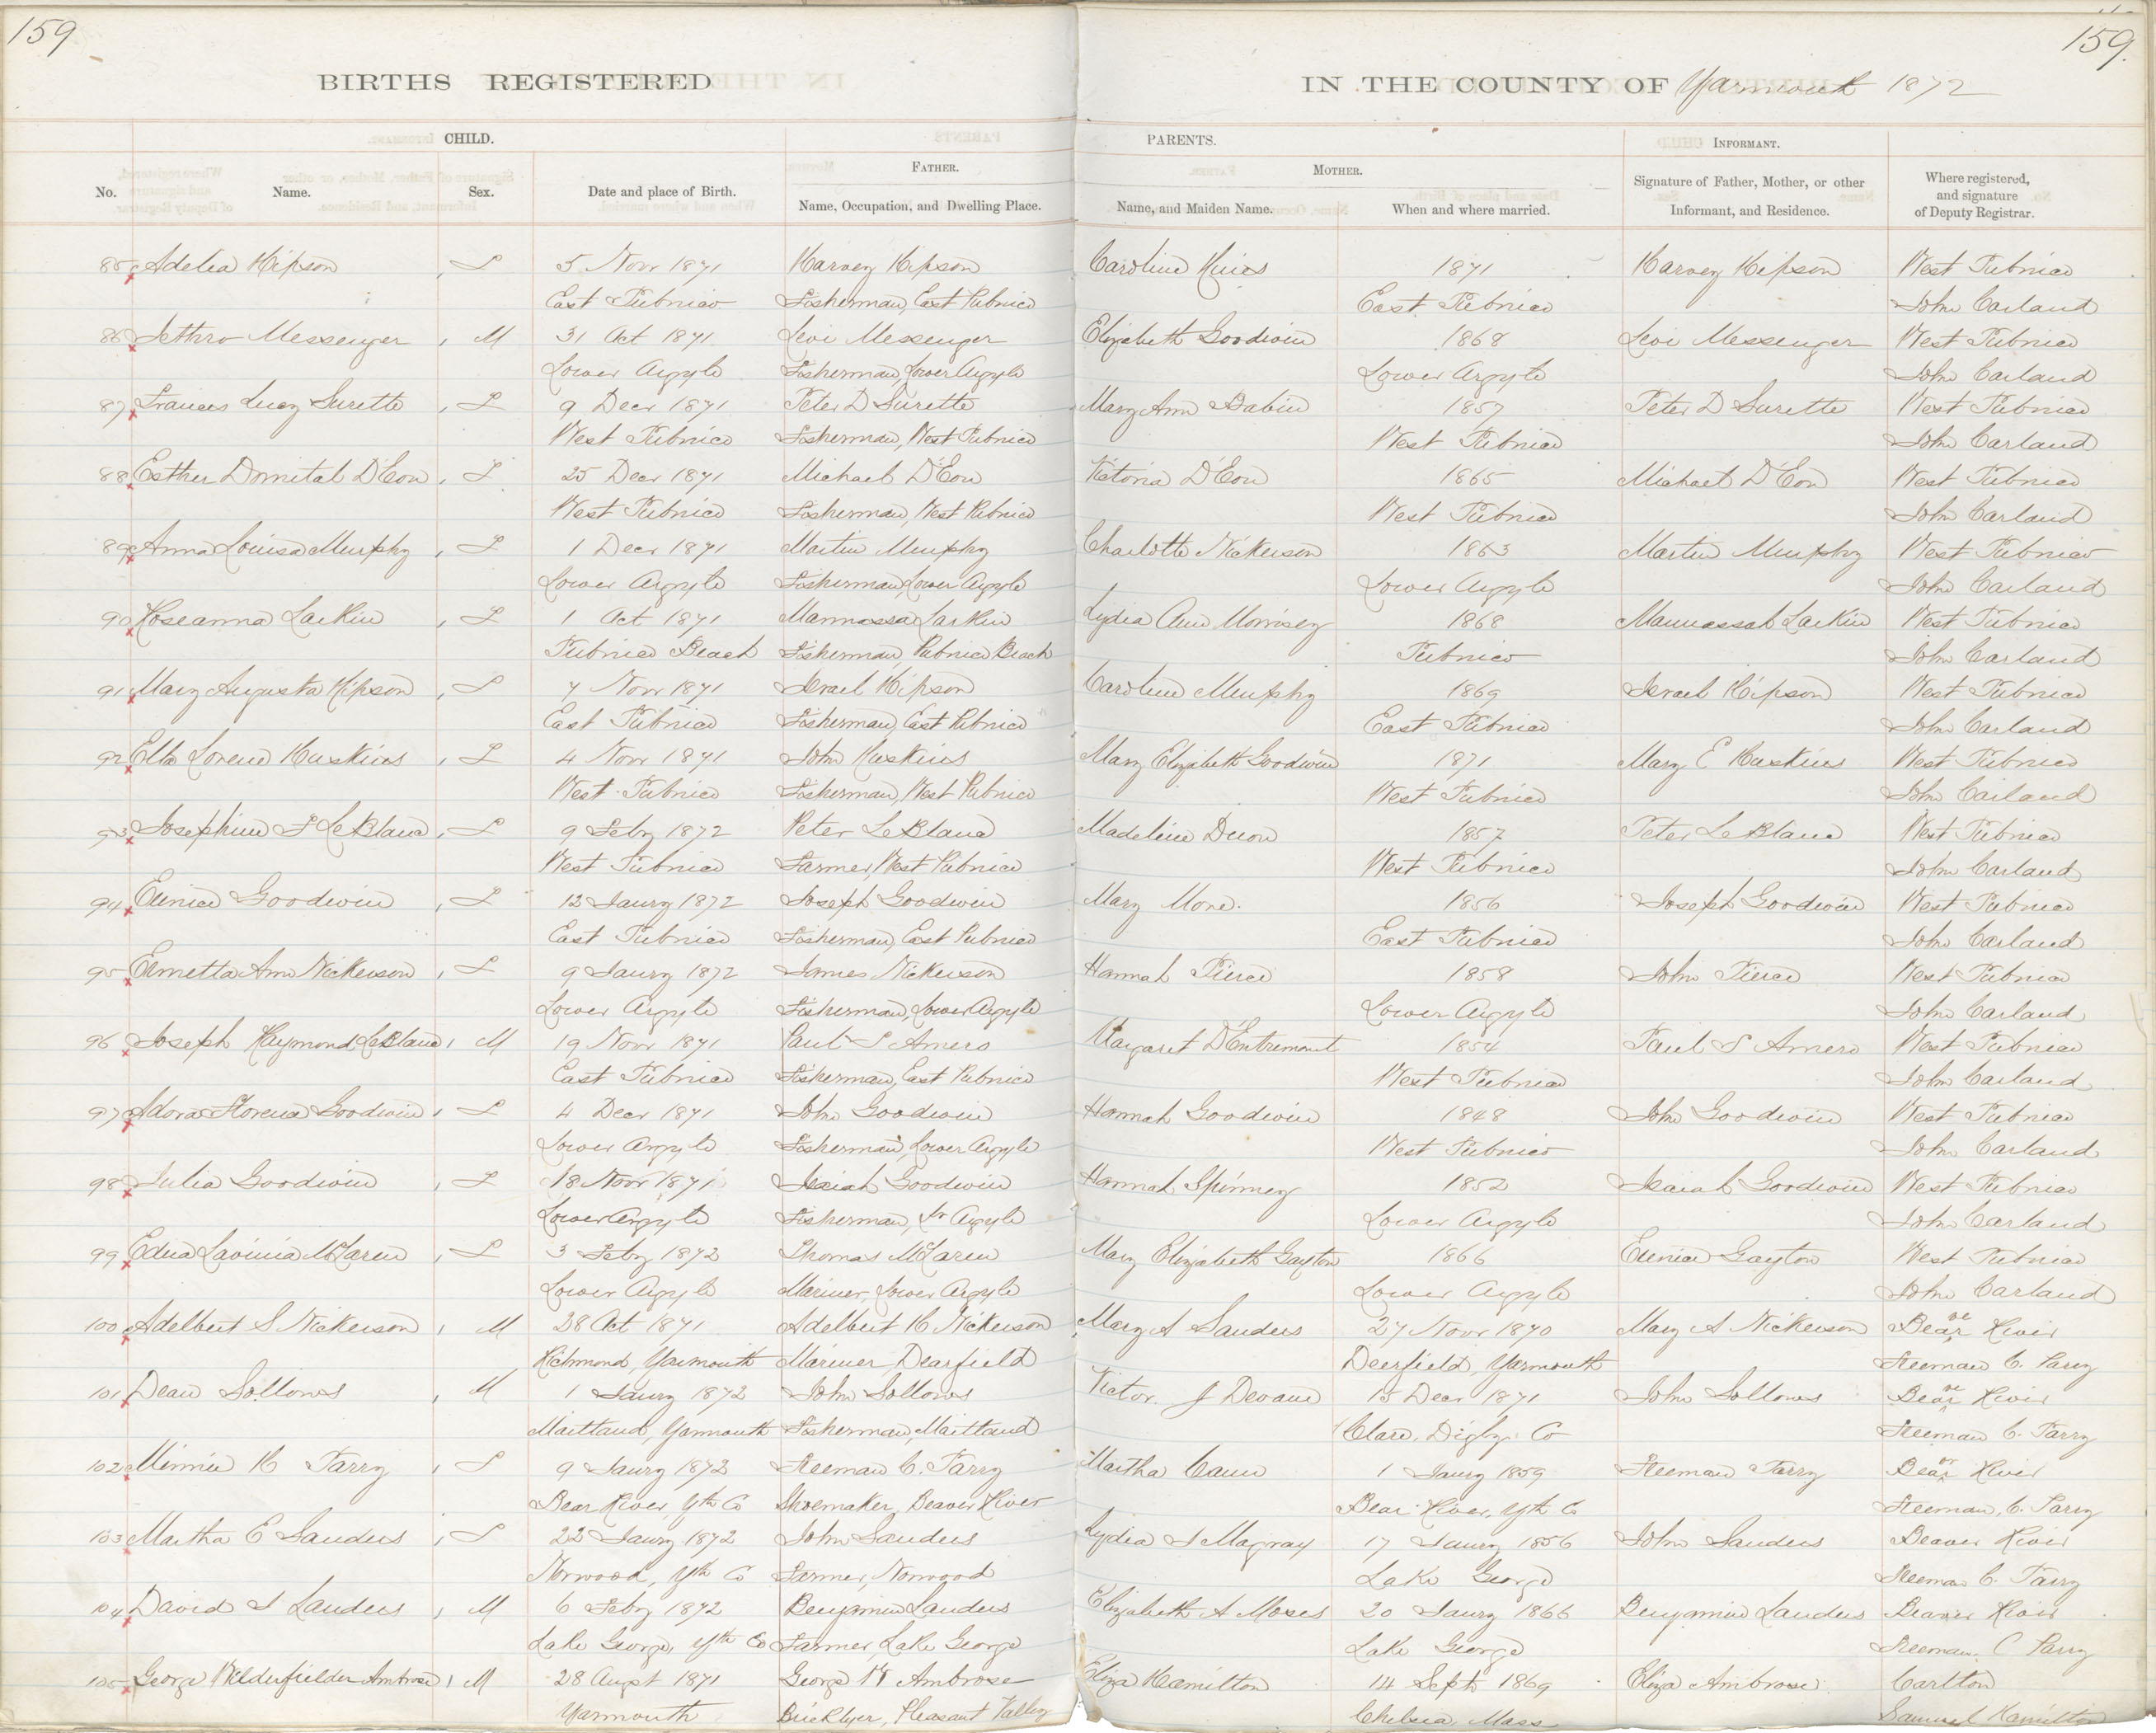 159
159.
BIRTHS REGISTERED
IN THE COUNTY OF Yarmouth 1872
CHILD.
PARENTS.
INFORMANT.
FATHER.
MOTHER.
No. Name. Sex. Date and place of Birth. Name, Occupation, and Dwelling Place. Name, and Maiden Name. When and where married. Signature of Father, Mother, or other Informant, and Residence. Where registered, and signature of Deputy Registrar.
85 Adelia Hipson F 5 Novr 1871 Harvey Hipson Caroline Hines 1871 Harvey Hipson West Pubnico
East Pubnico Fisherman, East Pubnico East Pubnico John Carland
86 Jethro Messenger M 31 Oct 1871 Levi Messenger Elizabeth Goodwin 1868 Levi Messenger West Pubnico
Lower Argyle Fisherman, Lower Argyle Lower Argyle John Carland
87 Frances Lucy Surette F 9 Decr 1871 Peter D Surette Mary Ann Babin 1857 Peter D Surette West Pubnico
West Pubnico Fisherman, West Pubnico West Pubnico John Carland
88 Esther Domital D'Eon F 25 Decr 1871 Michael D'Eon Victoria D'Eon 1865 Michael D'Eon West Pubnico
West Pubnico Fisherman, West Pubnico West Pubnico John Carland
89 Anna Louisa Murphy F 1 Decr 1871 Martin Murphy Charlotte Nickerson 1863 Martin Murphy West Pubnico
Lower Argyle Fisherman, Lower Argyle Lower Argyle John Carland
90 Roseanna Larkin F 1 Oct 1871 Mannassa Larkin Lydia Ann Morrisey 1868 Mannassah Larkin West Pubnico
Pubnico Beach Fisherman, Pubnico Beach Pubnico John Carland
91 Mary Augusta Hipson F 7 Novr 1871 Israel Hipson Caroline Murphy 1869 Israel Hipson West Pubnico
East Pubnico Fisherman, East Pubnico East Pubnico John Carland
92 Elta Lorena Huskins F 4 Novr 1871 John Huskins Mary Elizabeth Goodwin 1871 Mary E Huskins West Pubnico
West Pubnico Fisherman, West Pubnico West Pubnico John Carland
93 Josephine F LeBlanc F 9 Feby 1872 Peter LeBlanc Madeline Duon 1857 Peter LeBlanc West Pubnico
West Pubnico Farmer, West Pubnico West Pubnico John Carland
94 Eunice Goodwin F 12 Jany 1872 Joseph Goodwin Mary Mone. 1856 Joseph Goodwin West Pubnico
East Pubnico Fisherman, East Pubnico East Pubnico John Carland
95 Ermetta Ann Nickerson F 9 Jany 1872 James Nickerson Hannah Pierce 1858 John Pierce West Pubnico
Lower Argyle Fisherman, Lower Argyle Lower Argyle John Carland
96 Joseph Raymond LeBlanc M 19 Novr 1871 Paul S Amero Margaret D'Entremont 1854 Paul S Amero West Pubnico
East Pubnico Fisherman, East Pubnico West Pubnico John Carland
97 Adora Florence Goodwin F 4 Decr 1871 John Goodwin Hannah Goodwin 1848 John Goodwin West Pubnico
Lower Argyle Fisherman, Lower Argyle West Pubnico John Carland
98 Julia Goodwin F 18 Novr 1871 Isaiah Goodwin Hannah Spinney 1852 Isaiah Goodwin West Pubnico
Lower Argyle Fisherman, Lr Argyle Lower Argyle John Carland
99 Edna Lavinia McLaren F 3 Feby 1872 Thomas McLaren Mary Elizabeth Gayton 1866 Eunice Gayton West Pubnico
Lower Argyle Mariner, Lower Argyle Lower Argyle John Carland
100 Adelbert S Nickerson M 28 Oct 1871 Adelbert H Nickerson Mary A Sanders 27 Novr 1870 Mary A Nickerson Beaver River
Richmond, Yarmouth Mariner Dearfield Deerfield, Yarmouth Freeman C. Parry
101 Dean Sollows M 1 Jany 1872 John Sollows Victor. J Devane 15 Decr 1871 John Sollows Beaver River
Maitland, Yarmouth Fisherman, Maitland Clare, Digby Co Freeman C. Parry
102 Minnie H Parry F 9 Jany 1872 Freeman C. Parry Martha Cann 1 Jany 1859 Freeman Parry Beaver River
Bear River, Yth Co Shoemaker, Beaver River Bear River, Yth Co Freeman, C. Parry
103 Martha E Sanders F 22 Jany 1872 John Sanders Lydia S Magray 17 Jany 1856 John Sanders Beaver River
Norwood, Yth Co Farmer, Norwood Lake George Freeman C. Parry
104 David S Landers M 6 Feby 1872 Benjamin Landers Elizabeth A Moses 20 Jany 1866 Benjamin Landers Beaver River
Lake George, Yth Co Farmer, Lake George Lake George Freeman, C Parry
105 George Ambrose M 28 Augst 1871 George W Ambrose Eliza Hamilton 14 Sept 1869 Eliza Ambrose Carlton
Yarmouth Bricklyer, Pleasant Valley Chelsea, Mass Samuel Hamilton